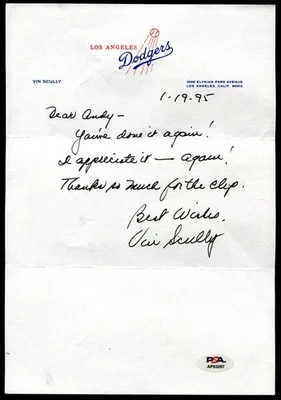 LOS ANGELES
Dodgers
VIN SCULLY
1000 ELYSIAN PARK AVENUE
LOS ANGELES, CALIF. 90012
1-19-95
Dear Andy -
You've done it again!
I appreciate it — again!
Thanks so much for the clip.
Best Wishes,
Vin Scully
PSA
AP93207